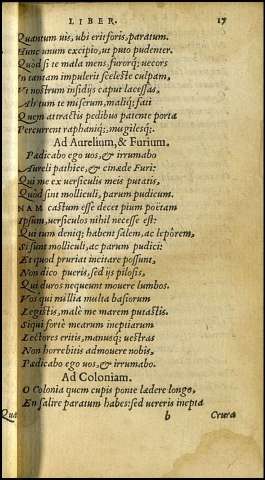 LIBER. 17
Quantum uis, ubi erit foris, paratum.
Hunc unum excipio, ut puto pudenter.
Quòd si te mala mens, furorq; uecors
In tantam impulerit sceleste culpam,
Vt nostrum insidijs caput lacessas,
Ah tum te miserum, maliq; fati
Quem attractis pedibus patente porta
Percurrent raphaniq;, mugilesq;.
Ad Aurelium, & Furium.
Pædicabo ego uos, & irrumabo
Aureli pathice, & cinæde Furi:
Qui me ex uersiculis meis putatis,
Quòd sunt molliculi, parum pudicum.
NAM castum esse decet pium poëtam
Ipsum, uersiculos nihil necesse est:
Qui tum deniq; habent salem, ac lepôrem,
Si sunt molliculi, ac parum pudici:
Et quod pruriat incitare possunt,
Non dico pueris, sed ijs pilosis,
Qui duros nequeunt mouere lumbos.
Vos qui millia multa basiorum
Legistis, malè me marem putastis.
Siqui fortè mearum ineptiarum
Lectores eritis, manusq; uestras
Non horrebitis admouere nobis,
Pædicabo ego uos, & irrumabo.
Ad Coloniam.
O Colonia quem cupis ponte lædere longo,
En salire paratum habes: sed uereris inepta
b Crura